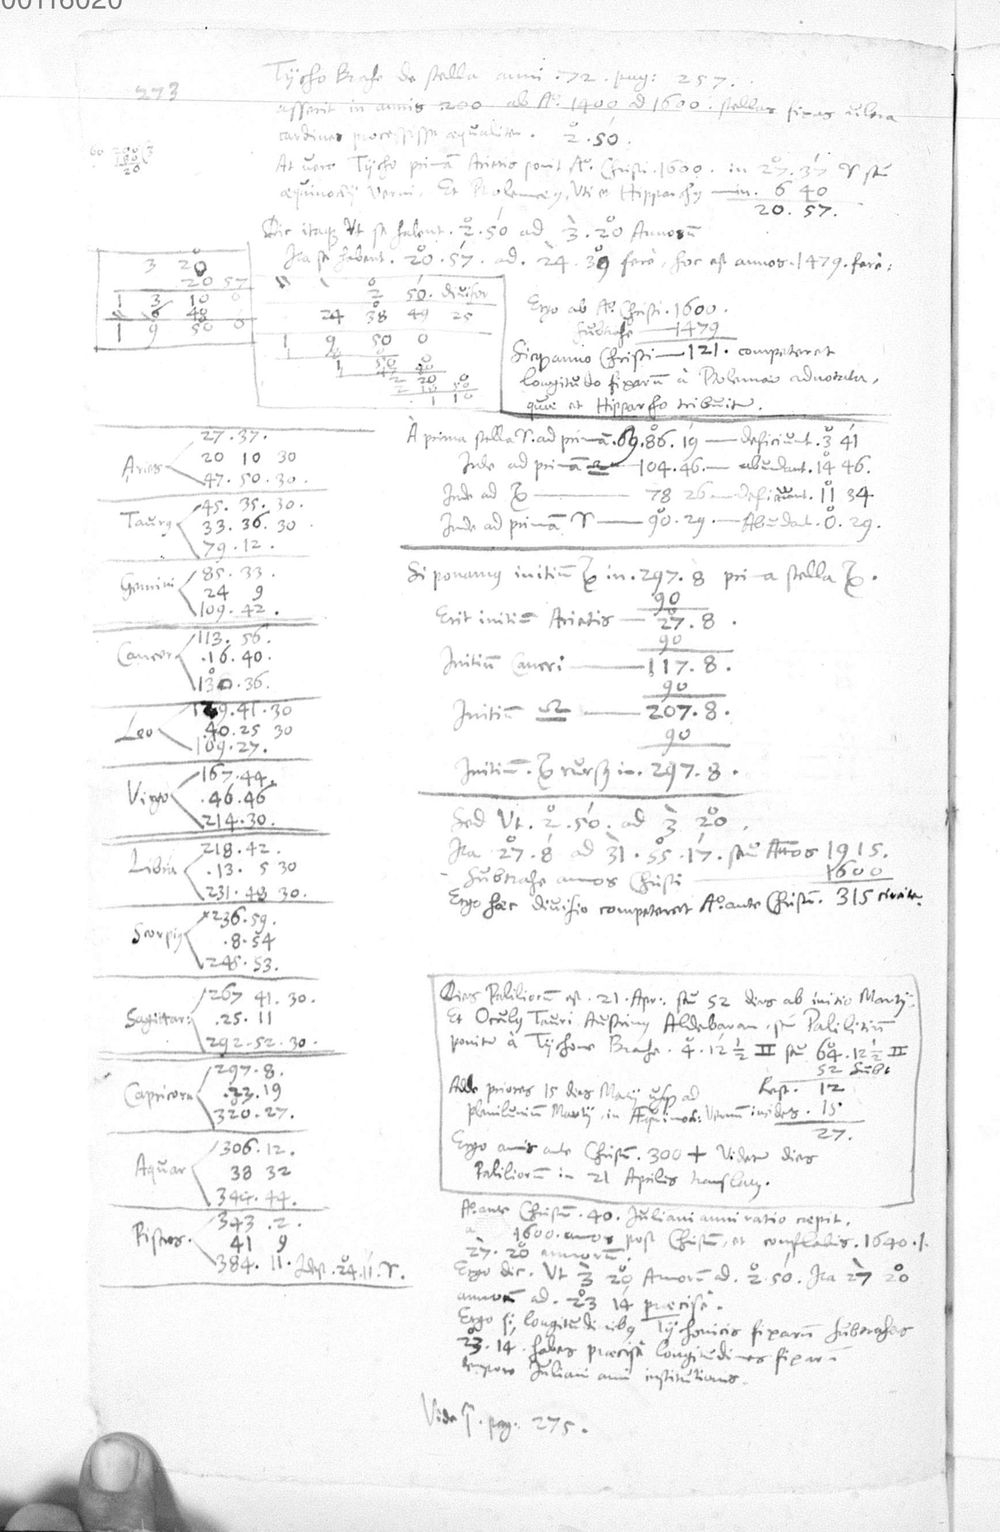 00116020
273
Tycho Brahe de stella anni .72. pag: 257.
asserit in annis 200 ab Aº. 1400 ad 1600. stellas fixas ultra
cardines processisse æqualiter. 2.50.
At vero Tycho primā Arietis ponit Aº. Christi .1600. in 27.37 ♈ seu
æquinoctij Verni. Et Ptolemæus, Vti et Hipparchus min. 6 40
20. 57.
Dic itaq Vt se habent. 2.50 ad 3.20 Annorū
Ita se habent. 20.57. ad. 24.39 ferè, hoc est annos.1479.ferè:
3 20
20 57
1 3 10 0
6 48
1 9 50 0
2 50. divisor
24 38 49 25
1 9 50 0
Ergo ab Aº. Christi.1600.
Subtrahe 1479
Sicq anno Christi 121. competeret
longitudo fixarū à Ptolemæo adnotata,
quæ et Hipparcho tribuitur.
Aries
27.37.
20 10 30
47.50.30.
Taurus
45. 35. 30.
33. 36. 30
79.12.
Gemini
85. 33.
24 9
109. 42.
Cancer
113. 56.
.16.40.
130.36.
Leo
129.41.30
.40.25 30
169.27.
Virgo
167.44.
.46.46
214.30.
Libra
218.42.
.13. 5 30
231.48 30.
Scorpius
236.59.
.8.54
245.53.
Sagittar:
267 41.30.
.25.11
292.52.30.
Capricorn
297.8.
.23.19
320.27.
Aquar
306.12.
38 32
344.44.
Pisces.
343.2.
41 9
384.11. Id est. 24.11.♈.
À prima stella ♈. ad primā. ♋.86.19 — deficiunt. 3 41
Inde ad primā ♎ — 104.46. — abundant. 14 46.
Inde ad ♑ — 78 26 — deficiunt. 11 34
Inde ad primā ♈ — 90.29. — Abundat. 0.29.
Si ponamus initiū ♑ in. 297.8 prima stella ♑.
90
Erit initiū Arietis — 27.8.
90
Initiū Cancri — 117.8.
90
Initiū ♎ — 207.8.
90
Initiū. ♑ rursus in. 297.8.
Sed Vt. 2.50. ad 3 20.
Ita 27.8 ad 31.55.17. seu Annos 1915.
Subtrahe annos Christi 1600
Ergo hæc divisio competeret Aº. ante Christū. 315 circiter.
Dies Paliliorū est. 21.Apr: seu 52 dies ab initio Martij.
Et Oculus Tauri Austrinus Aldebaran, seu Palilitiū
ponitur à Tychone Brahe. 4.12 ½ ♊ seu 64.12 ½ ♊
52 Subt
Adde priores 15 dies Martij usq ad Rest. 12
plenilunium Martij, in Æquinoct: Vernū incides. 15
27.
Ergo annis ante Christū. 300 + Videtur dies
Paliliorū in 21 Aprilis translatus.
Aº. ante Christū. 40. Juliani anni ratio cœpit.
1600. annos post Christū, et conflabis. 1640.
27. 20 annorū.
Ergo dic. Vt 3 20 Annorū ad. 2.50. Ita 27 20
annorū ad. 23 14 præcisè.
Ergo si longitudinibus Tychonicis fixarū Subtrahas
23.14. habes præcisè longitudines fixarū
tempore Juliani anni institutionis.
Vide pag. 275.